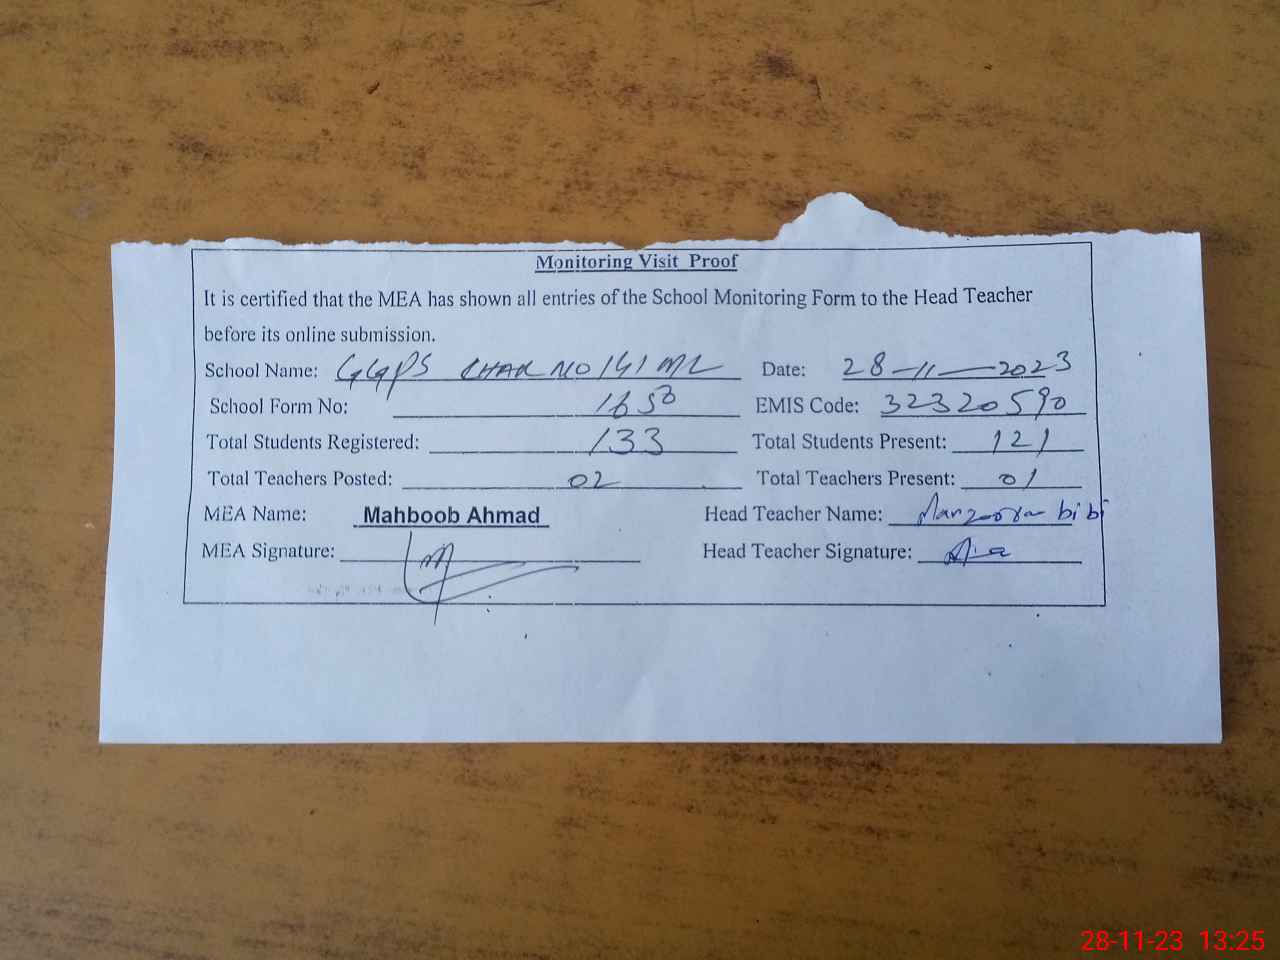 Monitoring Visit Proof
It is certified that the MEA has shown all entries of the School Monitoring Form to the Head Teacher
before its online submission.
School Name: GGPS CHAK NO 141 ML Date: 28-11-2023
School Form No: 1650 EMIS Code: 32320590
Total Students Registered: 133 Total Students Present: 121
Total Teachers Posted: 02 Total Teachers Present: 01
MEA Name: Mahboob Ahmad Head Teacher Name: Manzooran bibi
MEA Signature: Head Teacher Signature:
28-11-23 13:25